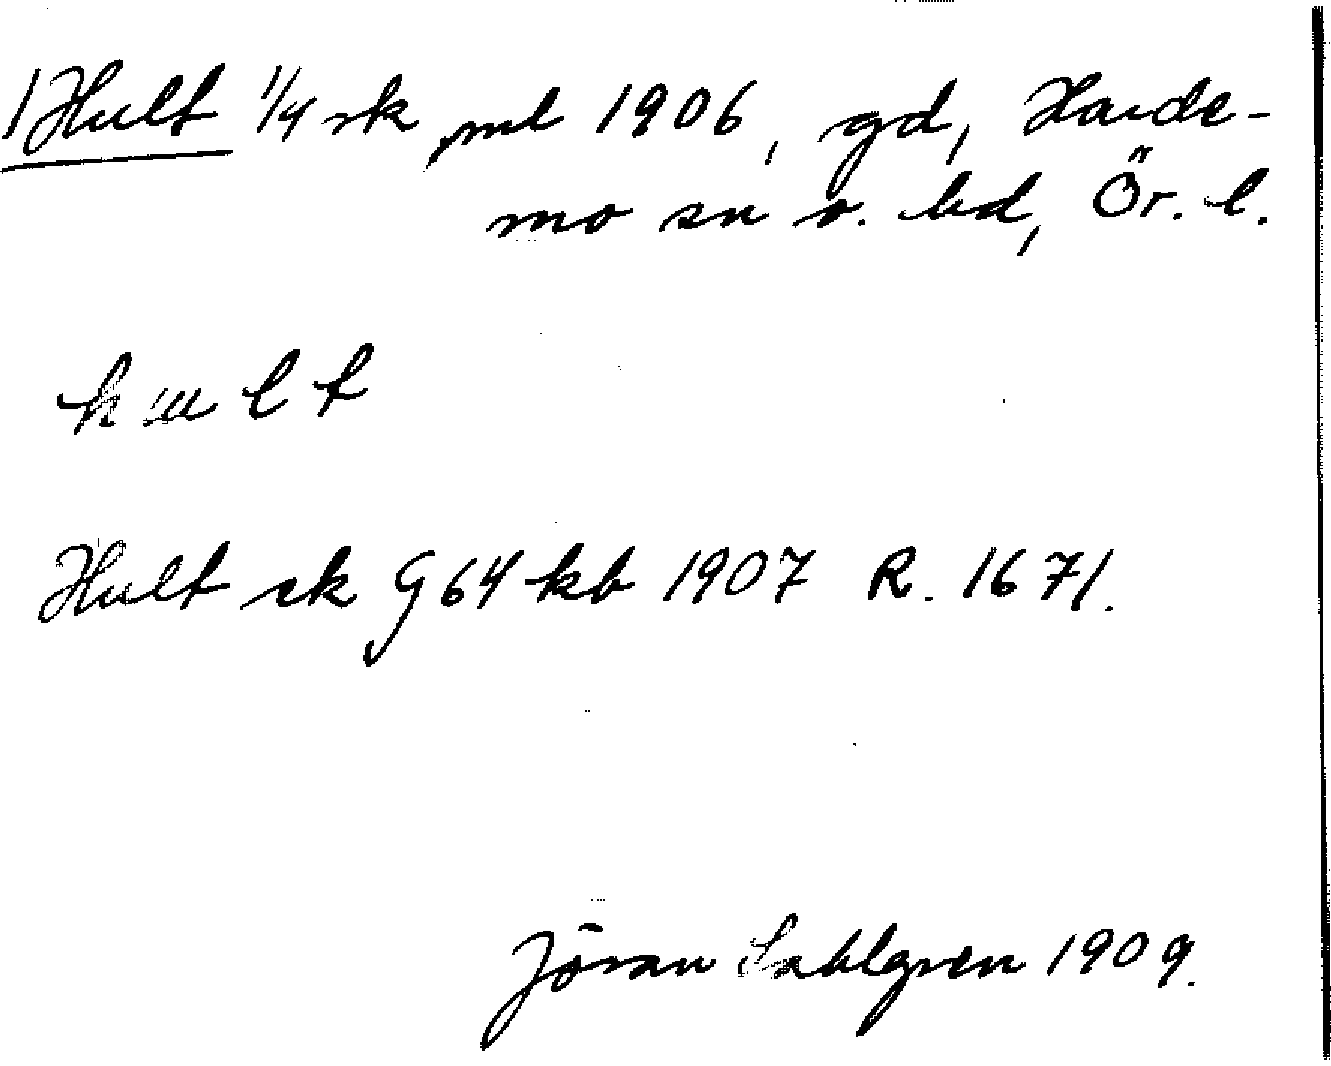 1 Hult 1/4 sk, ml 1906, gd, Harde-
mo sn o. hd, Ör. l.
hult
Hult sk G64 kb 1907 R. 1671.
Jöran Sahlgren 1909.